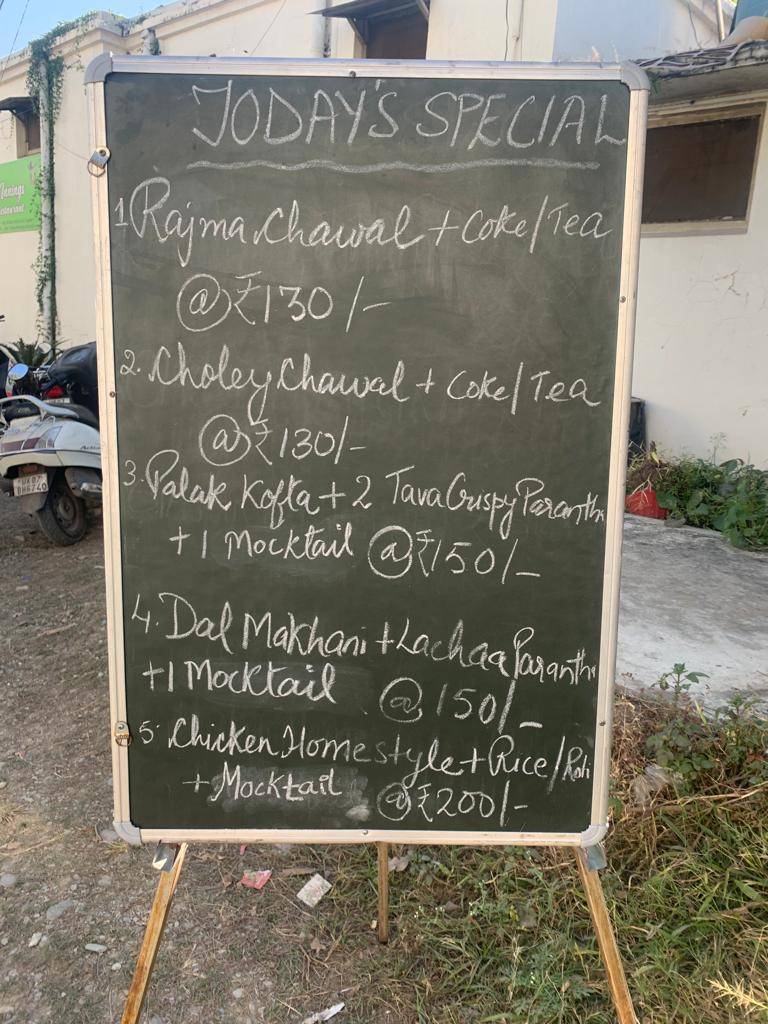 TODAY'S SPECIAL
1 Rajma Chawal + Coke/Tea
@ ₹130/-
2. Choley Chawal + Coke/Tea
@ ₹130/-
3. Palak Kofta + 2 Tava Crispy Paranth
+ 1 Mocktail @ ₹150/-
4. Dal Makhani + Lachaa Paranth
+ 1 Mocktail @ 150/-
5. Chicken Homestyle + Rice/Roti
+ Mocktail @ ₹200/-
Innings
UK07